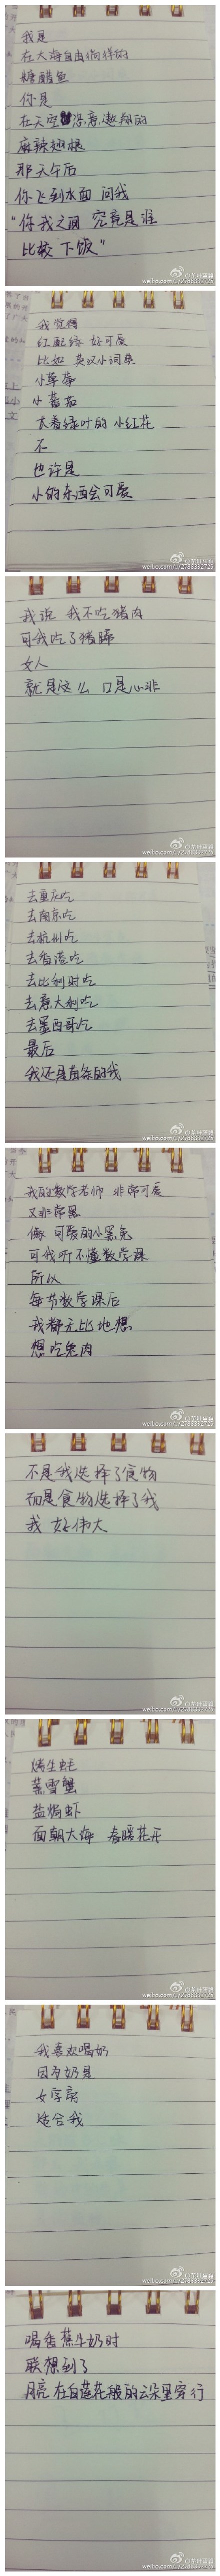 我是
在大海自由徜徉的
糖醋鱼
你是
在天空 恣意遨翔的
麻辣翅根
那天午后
你飞到水面 问我
“你我之间 究竟是谁
比较 下饭”
我觉得
红配绿 好可爱
比如 英汉小词典
小草莓
小番茄
衣着绿叶的 小红花
不
也许是
小的东西会可爱
我说 我不吃猪肉
可我吃了猪蹄
女人
就是这么 口是心非
去重庆吃
去南京吃
去杭州吃
去香港吃
去比利时吃
去意大利吃
去墨西哥吃
最后
我还是有条的我
我的数学老师 非常可爱
又非常黑
像 可爱的小黑兔
可我听不懂数学课
所以
每节数学课后
我都无比地想
想吃兔肉
不是我选择了食物
而是食物选择了我
我 好伟大
烤生蚝
蒸雪蟹
盐焗虾
面朝大海 春暖花开
我喜欢喝奶
因为奶是
女字旁
适合我
喝香蕉牛奶时
联想到了
月亮 在白莲花般的云朵里穿行